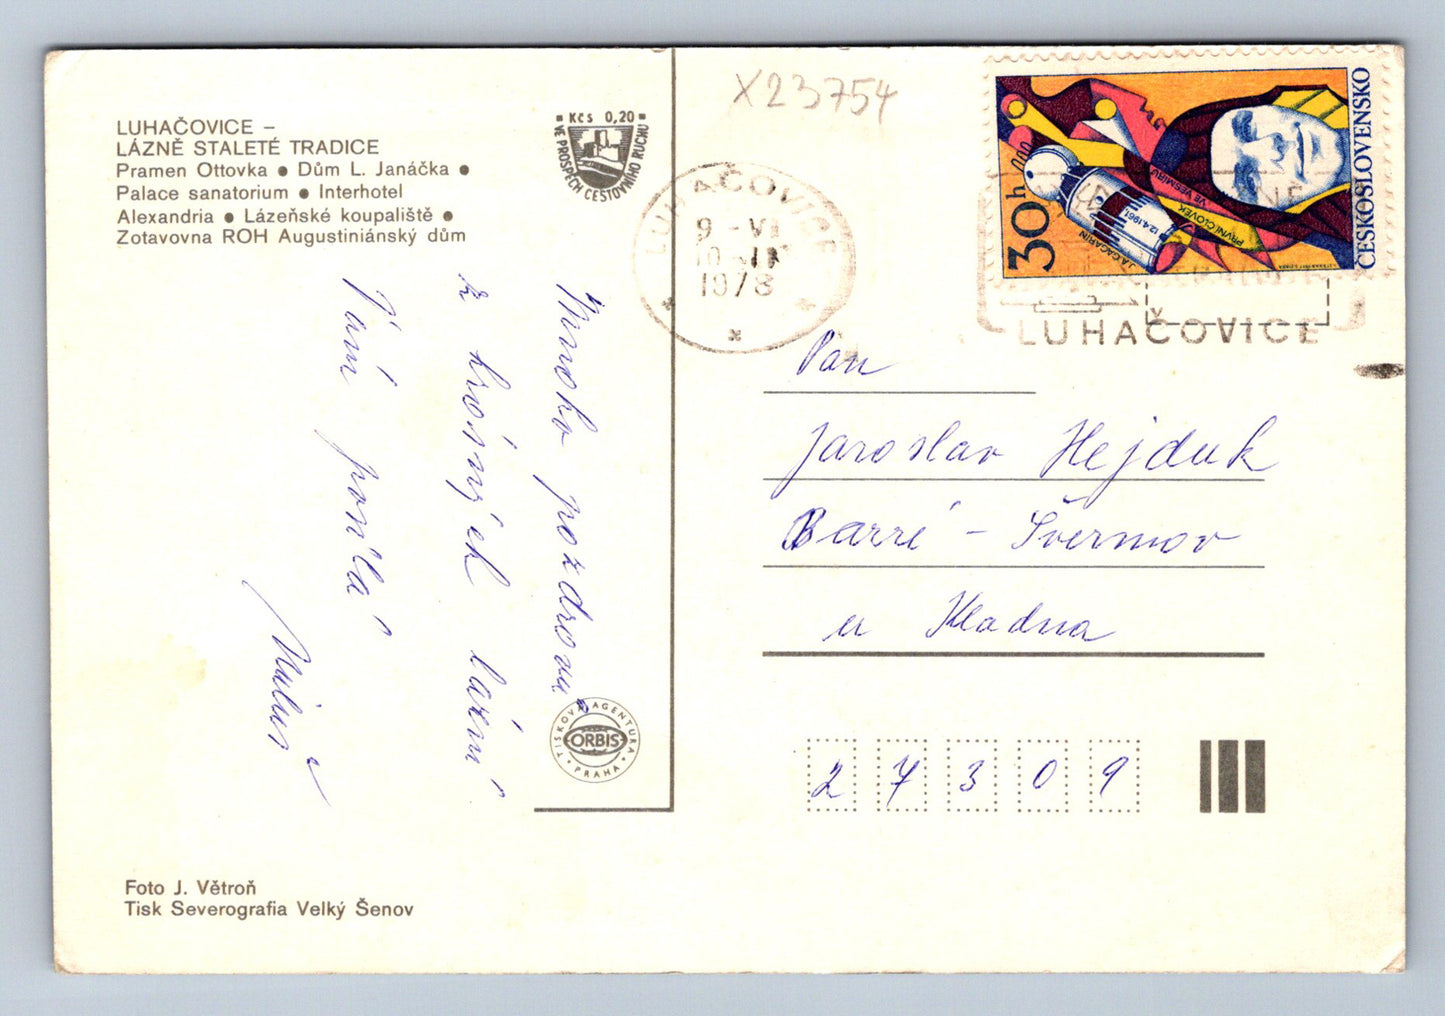 LUHAČOVICE –
LÁZNĚ STALETÉ TRADICE
Pramen Ottovka ● Dům L. Janáčka ●
Palace sanatorium ● Interhotel
Alexandria ● Lázeňské koupaliště ●
Zotavovna ROH Augustiniánský dům
Kčs 0,20
VE PROSPĚCH CESTOVNÍHO RUCHU
X23754
LUHAČOVICE
9 -VI
1978
30h
ČESKOSLOVENSKO
J.A.GAGARIN 12.4.1961
PRVNÍ ČLOVĚK
VE VESMÍRU
LUHAČOVICE
Mnoho pozdravů
z krásných lázní
Vám posílá
Pan
Jaroslav Hejduk
Barré - Švermov
u Kladna
27309
TISKOVÁ AGENTURA
ORBIS
PRAHA
Foto J. Větroň
Tisk Severografia Velký Šenov